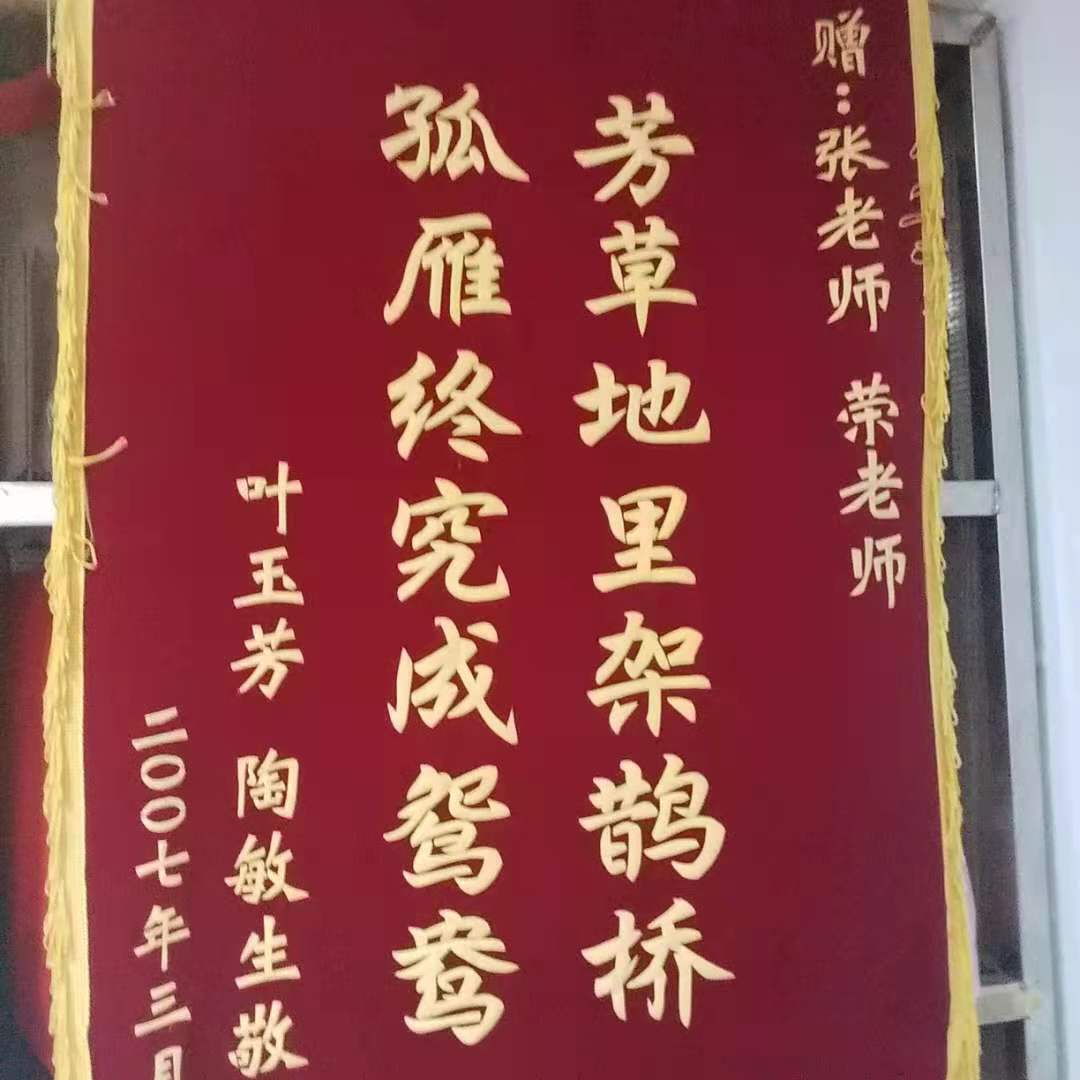 赠：张老师 荣老师
芳草地里架鹊桥
孤雁终究成鸳鸯
叶玉芳 陶敏生敬
二〇〇七年三月